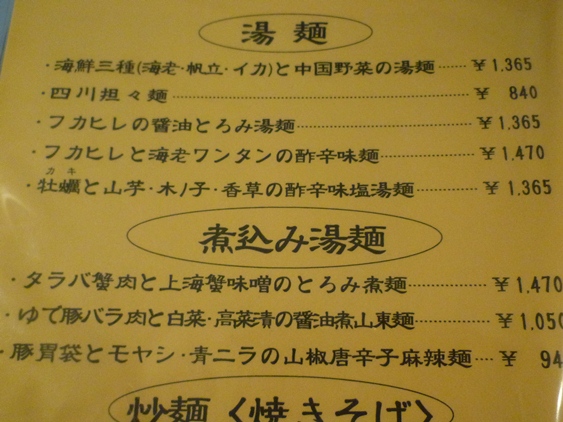 湯麺
・海鮮三種(海老・帆立・イカ)と中国野菜の湯麺 ¥1,365
・四川担々麺 ¥840
・フカヒレの醤油とろみ湯麺 ¥1,365
・フカヒレと海老ワンタンの酢辛味麺 ¥1,470
カキ
・牡蠣と山芋・木ノ子・香草の酢辛味塩湯麺 ¥1,365
煮込み湯麺
・タラバ蟹肉と上海蟹味噌のとろみ煮麺 ¥1,470
・ゆで豚バラ肉と白菜・高菜漬の醤油煮山東麺 ¥1,050
・豚胃袋とモヤシ・青ニラの山椒唐辛子麻辣麺 ¥94
炒麺〈焼きそば〉